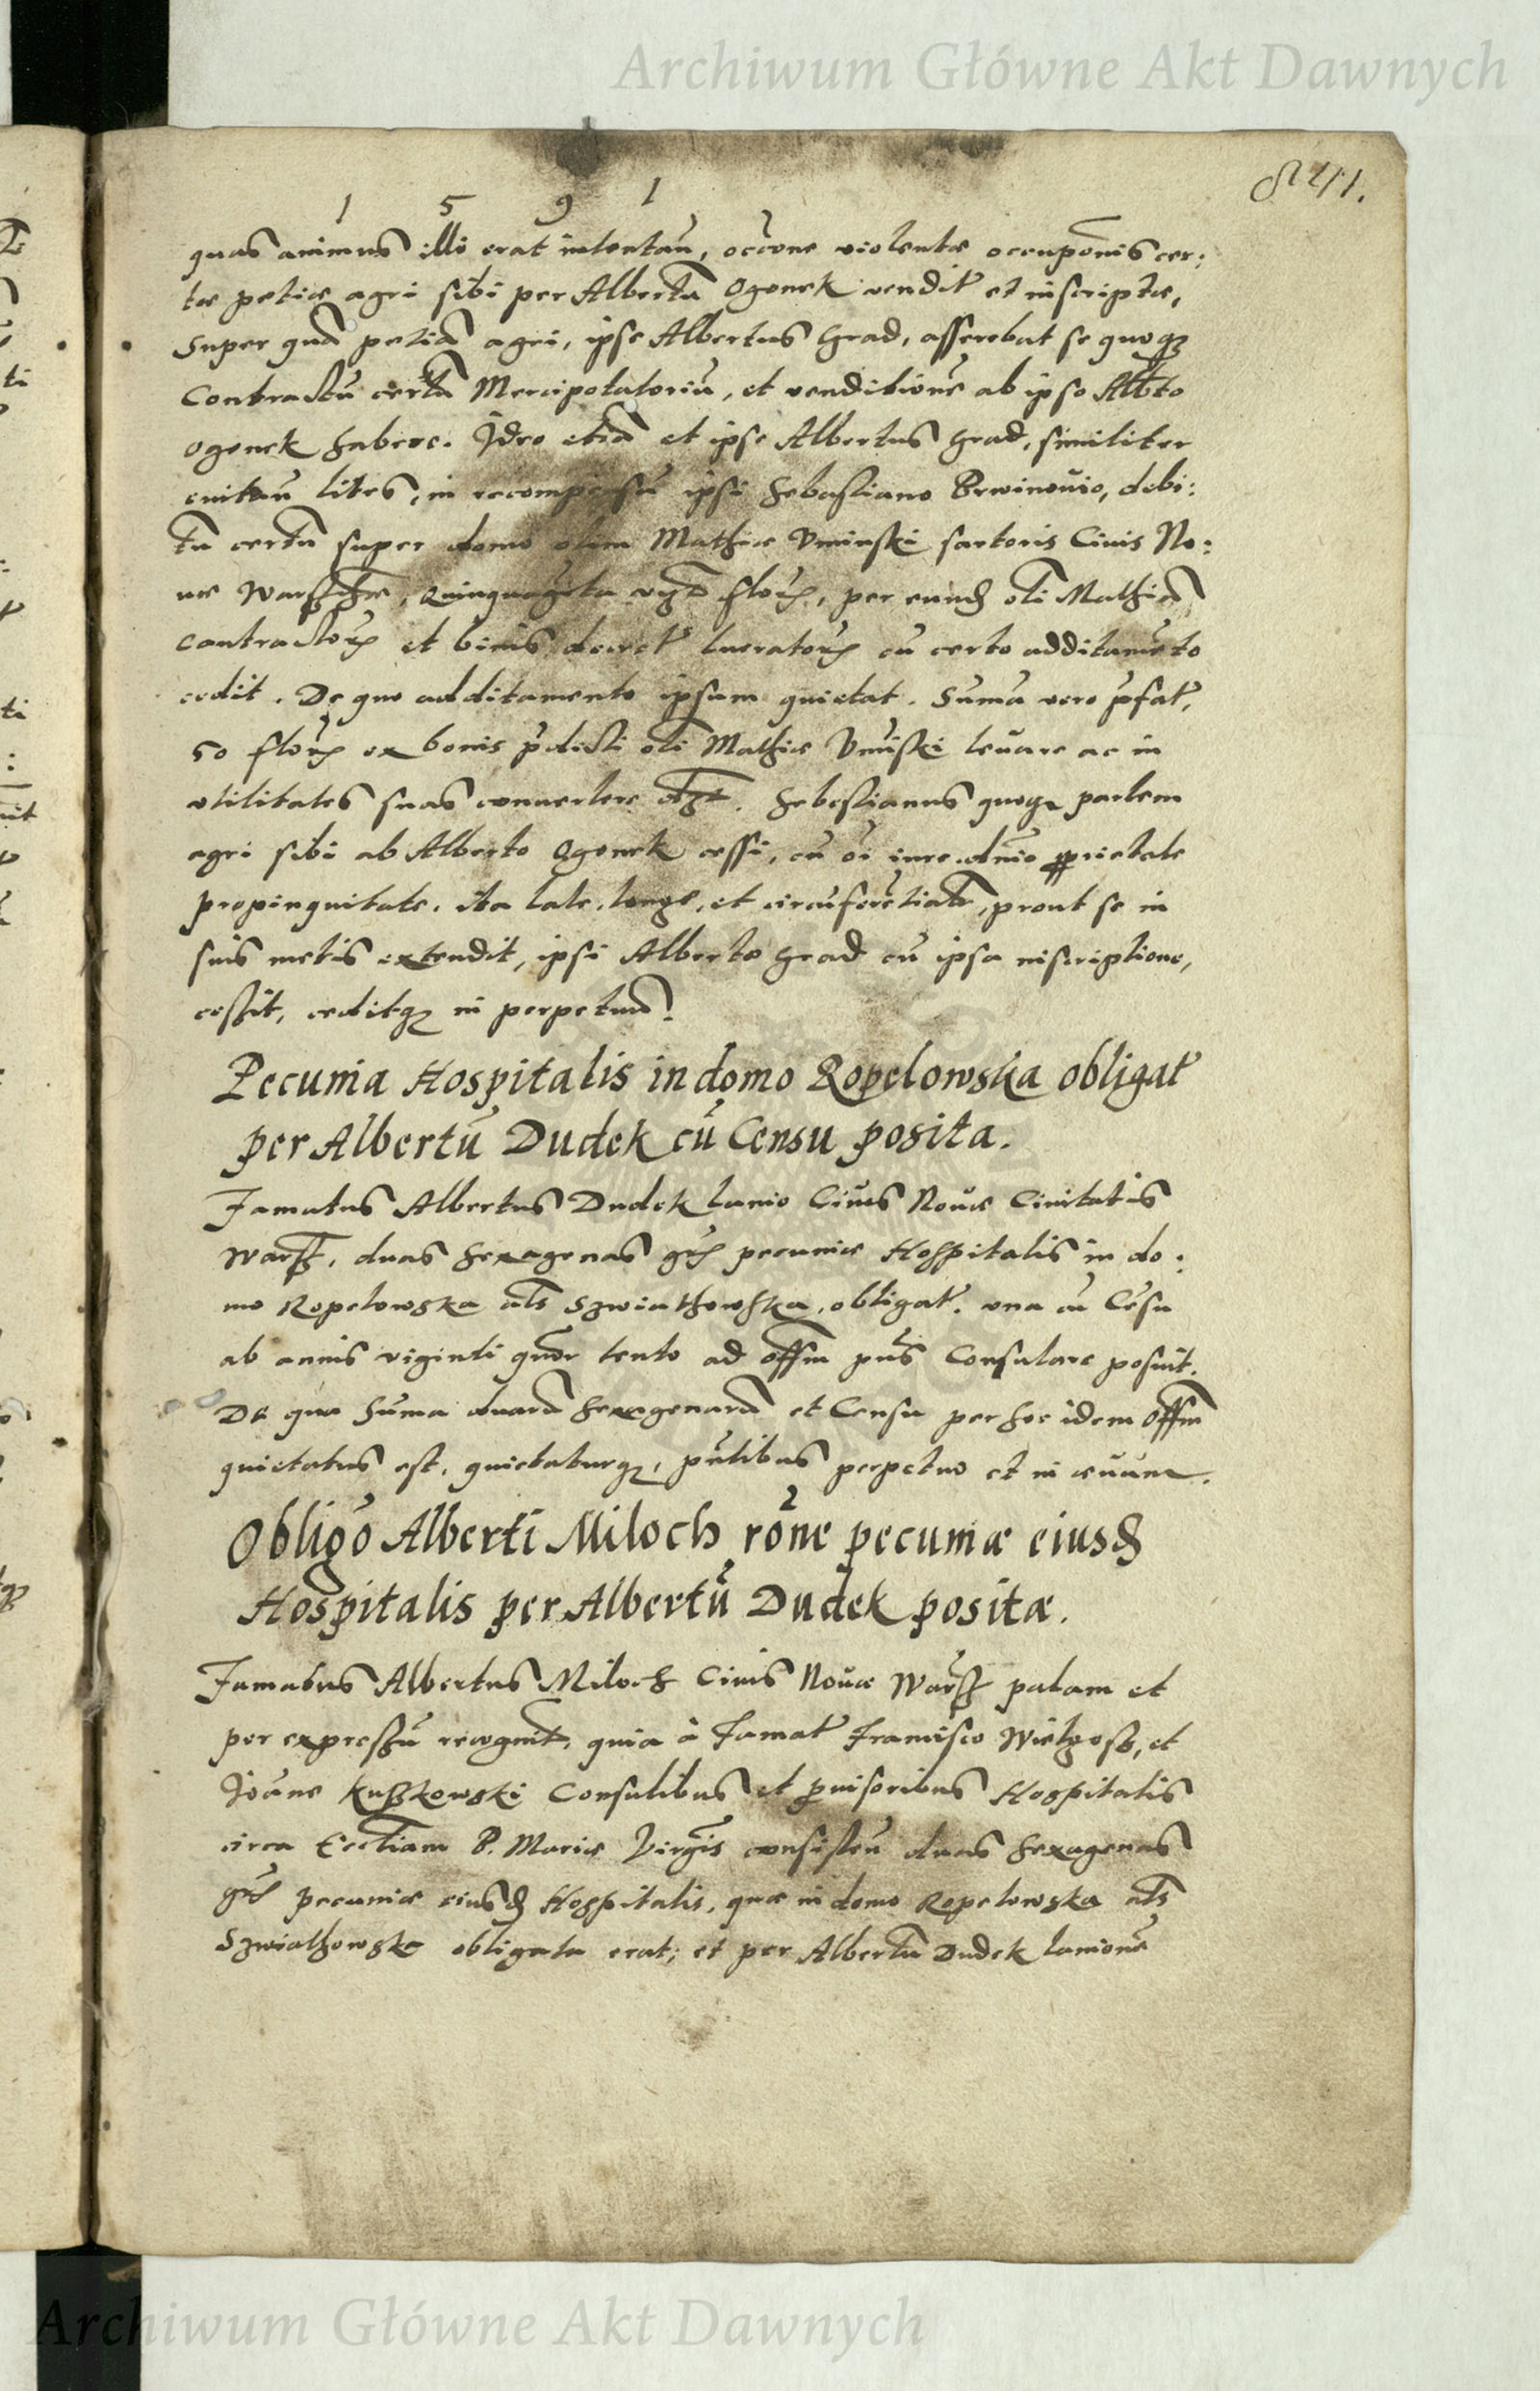 Archiwum Główne Akt Dawnych
1 5 9 1
quas animus illi erat intentañ, occõne violentæ occupõnis cer:
tæ petiæ agri sibi per Albertũ Ogonek vendit et inscriptæ,
Super quã petiã agri, ipse Albertus Grad, asserebat se quoqз
Contractũ certũ Mercipotatoriũ, et venditionẽ ab ipso Albto
Ogonek habere. Ideo etiã et ipse Albertus Grad, similiter
evitañ lites, in recompensũ ipsi Sebastiano Brwinovio, debi:
tũ certũ super domo olim Mathiæ Uminski sartoris Civis No:
væ flor, per eund oli Mathiã
contractor et binis decret lucrator cũ certo additamẽto
cedit. De quo additamento ipsum quietat. Sũma vero p̃fat,
50 flor ex bonis p̃dicti oli Mathiæ Umiski levare ac in
utilitates suas convertere. Sebastianus quoqз partem
agri sibi ab Alberto Ogonek cessi, cũ õi iure dñio pprietate
propinquitate, ita late, longe, et circũferẽtiatr, prout se in
suis metis extendit, ipsi Alberto Grad cũ ipsa inscriptione,
cessit, ceditqз in perpetuũ.
Pecunia Hospitalis in domo Ropelowska obligat
per Albertũ Dudek cũ Censu posita.
Famatus Albertus Dudek lanio Civis Novæ Civitatis
Warß, duas sexagenas gr pecuniæ Hospitalis in do:
mo Ropelowska als Szwiathowska, obligat, una cũ Cẽsu
ab annis viginti quõr tento ad offm pñs Consulare posuit.
De qua Suma duarũ sexagenarũ et Censu per hoc idem offm
quietatus est, quietaturqз, pñtibus perpetuo et in ævum.
Obligõ Alberti Miloch rõne pecuniæ eiusd
Hospitalis per Albertũ Dudek positæ.
Famatus Albertus Miloch Civis Novæ Warß palam et
per expressũ recognit, quia à Famat Francisco Wielgosz, et
Joãne Kußkowski Consulibus et pvisoribus Hospitalis
circa Eccliam B. Mariæ Virgis consisteñ duas sexagenas
gr pecuniæ eiusd Hospitalis, quæ in domo Ropelowska als
Szwiathowska obligata erat; et per Albertũ Dudek lanionẽ
Archiwum Główne Akt Dawnych